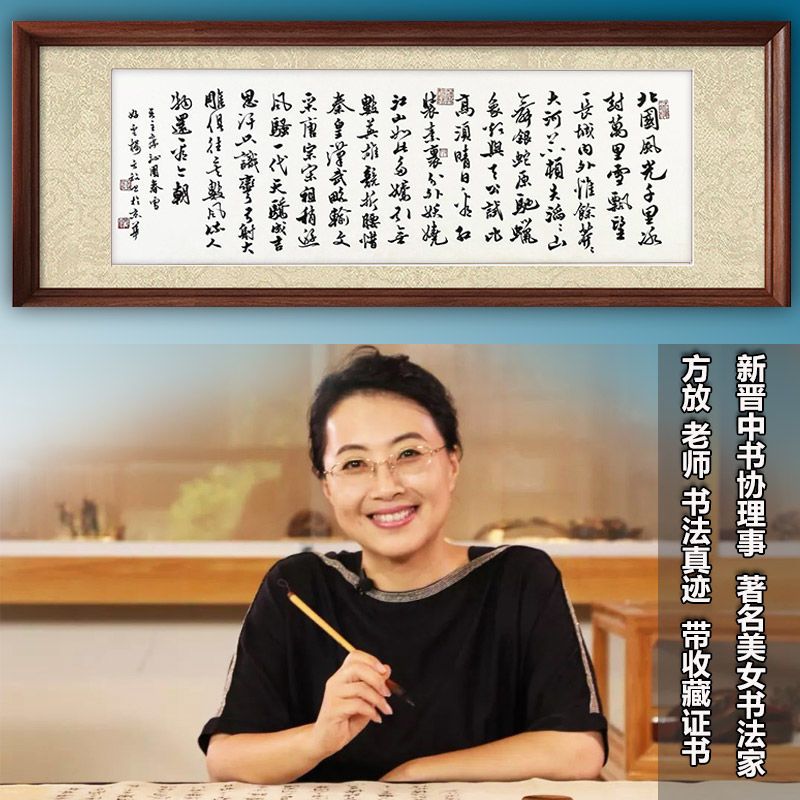 北國風光千里冰
封萬里雪飄望
長城内外惟餘莽〻
大河上下頓失滔〻山
舞銀蛇原馳蠟
象欲與天公試比
高須晴日看紅
裝素裹分外妖嬈
江山如此多嬌引無
數英雄競折腰惜
秦皇漢武略輸文
采唐宗宋祖稍遜
風騷一代天驕成吉
思汗只識彎弓射大
雕俱往矣數風流人
物還看今朝
毛主席沁園春雪
於京華
新晋中书协理事 著名美女书法家
方放 老师 书法真迹 带收藏证书